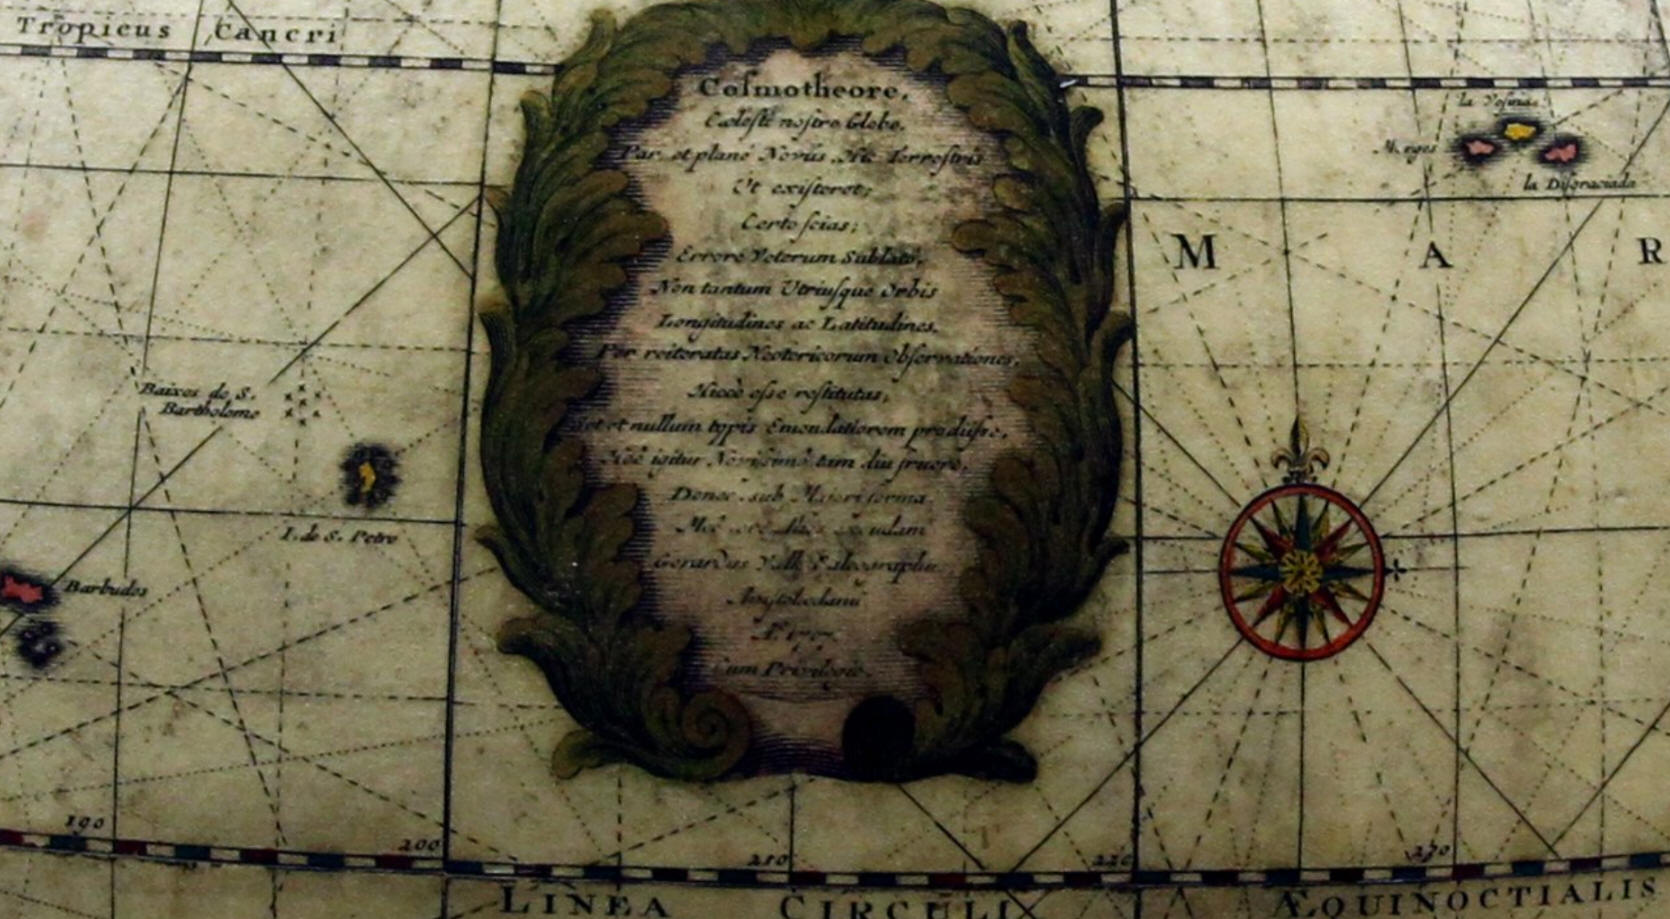 Tropicus Cancri
Coſmotheore,
Cœleſti noſtro Globo,
Par, et planè Novus Hic Terreſtris
Ut exiſteret;
Certo ſcias;
Errore Veterum Sublato,
Non tantum Utriuſque Orbis
Longitudines ac Latitudines,
Per reiteratas Neotericorum Obſervationes,
Hicce eſse reſtitutas;
Sed et nullum typis Emendatiorem prodijſse.
Hoc igitur Noviſsimo tam diu fruere,
Donec sub Majori forma
Gerardus Valk Calcographus
Amſtelodami
Cum Privilegio.
la Desgraciada
M A R
Baixos de S.
Bartholome
I. de S. Petro
Barbudos
190
200
210
220
230
LINEA CIRCULI ÆQUINOCTIALIS